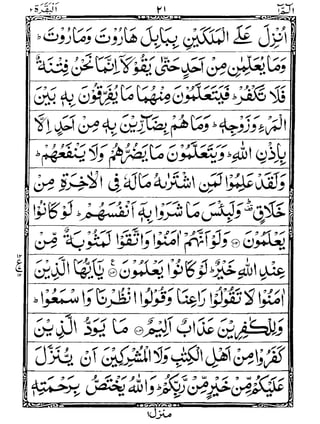 الٓمّٓ ٢١ البقرة
اُنْزِلَ عَلَی الْمَلَكَیْنِ بِبَابِلَ هَارُوْتَ وَمَارُوْتَ ؕ
وَمَا یُعَلِّمٰنِ مِنْ اَحَدٍ حَتّٰی یَقُوْلَاۤ اِنَّمَا نَحْنُ فِتْنَةٌ
فَلَا تَكْفُرْ ؕ فَیَتَعَلَّمُوْنَ مِنْهُمَا مَا یُفَرِّقُوْنَ بِهٖ بَیْنَ
الْمَرْءِ وَزَوْجِهٖ ؕ وَمَا هُمْ بِضَآرِّیْنَ بِهٖ مِنْ اَحَدٍ اِلَّا
بِاِذْنِ اللّٰهِ ؕ وَیَتَعَلَّمُوْنَ مَا یَضُرُّهُمْ وَلَا یَنْفَعُهُمْ ؕ
وَلَقَدْ عَلِمُوْا لَمَنِ اشْتَرٰىهُ مَا لَهٗ فِی الْاٰخِرَةِ مِنْ
خَلَاقٍ ؕ۫ وَلَبِئْسَ مَا شَرَوْا بِهٖۤ اَنْفُسَهُمْ ؕ لَوْ كَانُوْا
یَعْلَمُوْنَ ۝ وَلَوْ اَنَّهُمْ اٰمَنُوْا وَاتَّقَوْا لَمَثُوْبَةٌ مِّنْ
عِنْدِ اللّٰهِ خَیْرٌ ؕ لَوْ كَانُوْا یَعْلَمُوْنَ ۝ یٰۤاَیُّهَا الَّذِیْنَ
اٰمَنُوْا لَا تَقُوْلُوْا رَاعِنَا وَقُوْلُوا انْظُرْنَا وَاسْمَعُوْا ؕ
وَلِلْكٰفِرِیْنَ عَذَابٌ اَلِیْمٌ ۝ مَا یَوَدُّ الَّذِیْنَ
كَفَرُوْا مِنْ اَهْلِ الْكِتٰبِ وَلَا الْمُشْرِكِیْنَ اَنْ یُّنَزَّلَ
عَلَیْكُمْ مِّنْ خَیْرٍ مِّنْ رَّبِّكُمْ ؕ وَاللّٰهُ یَخْتَصُّ بِرَحْمَتِهٖ
منزل ١